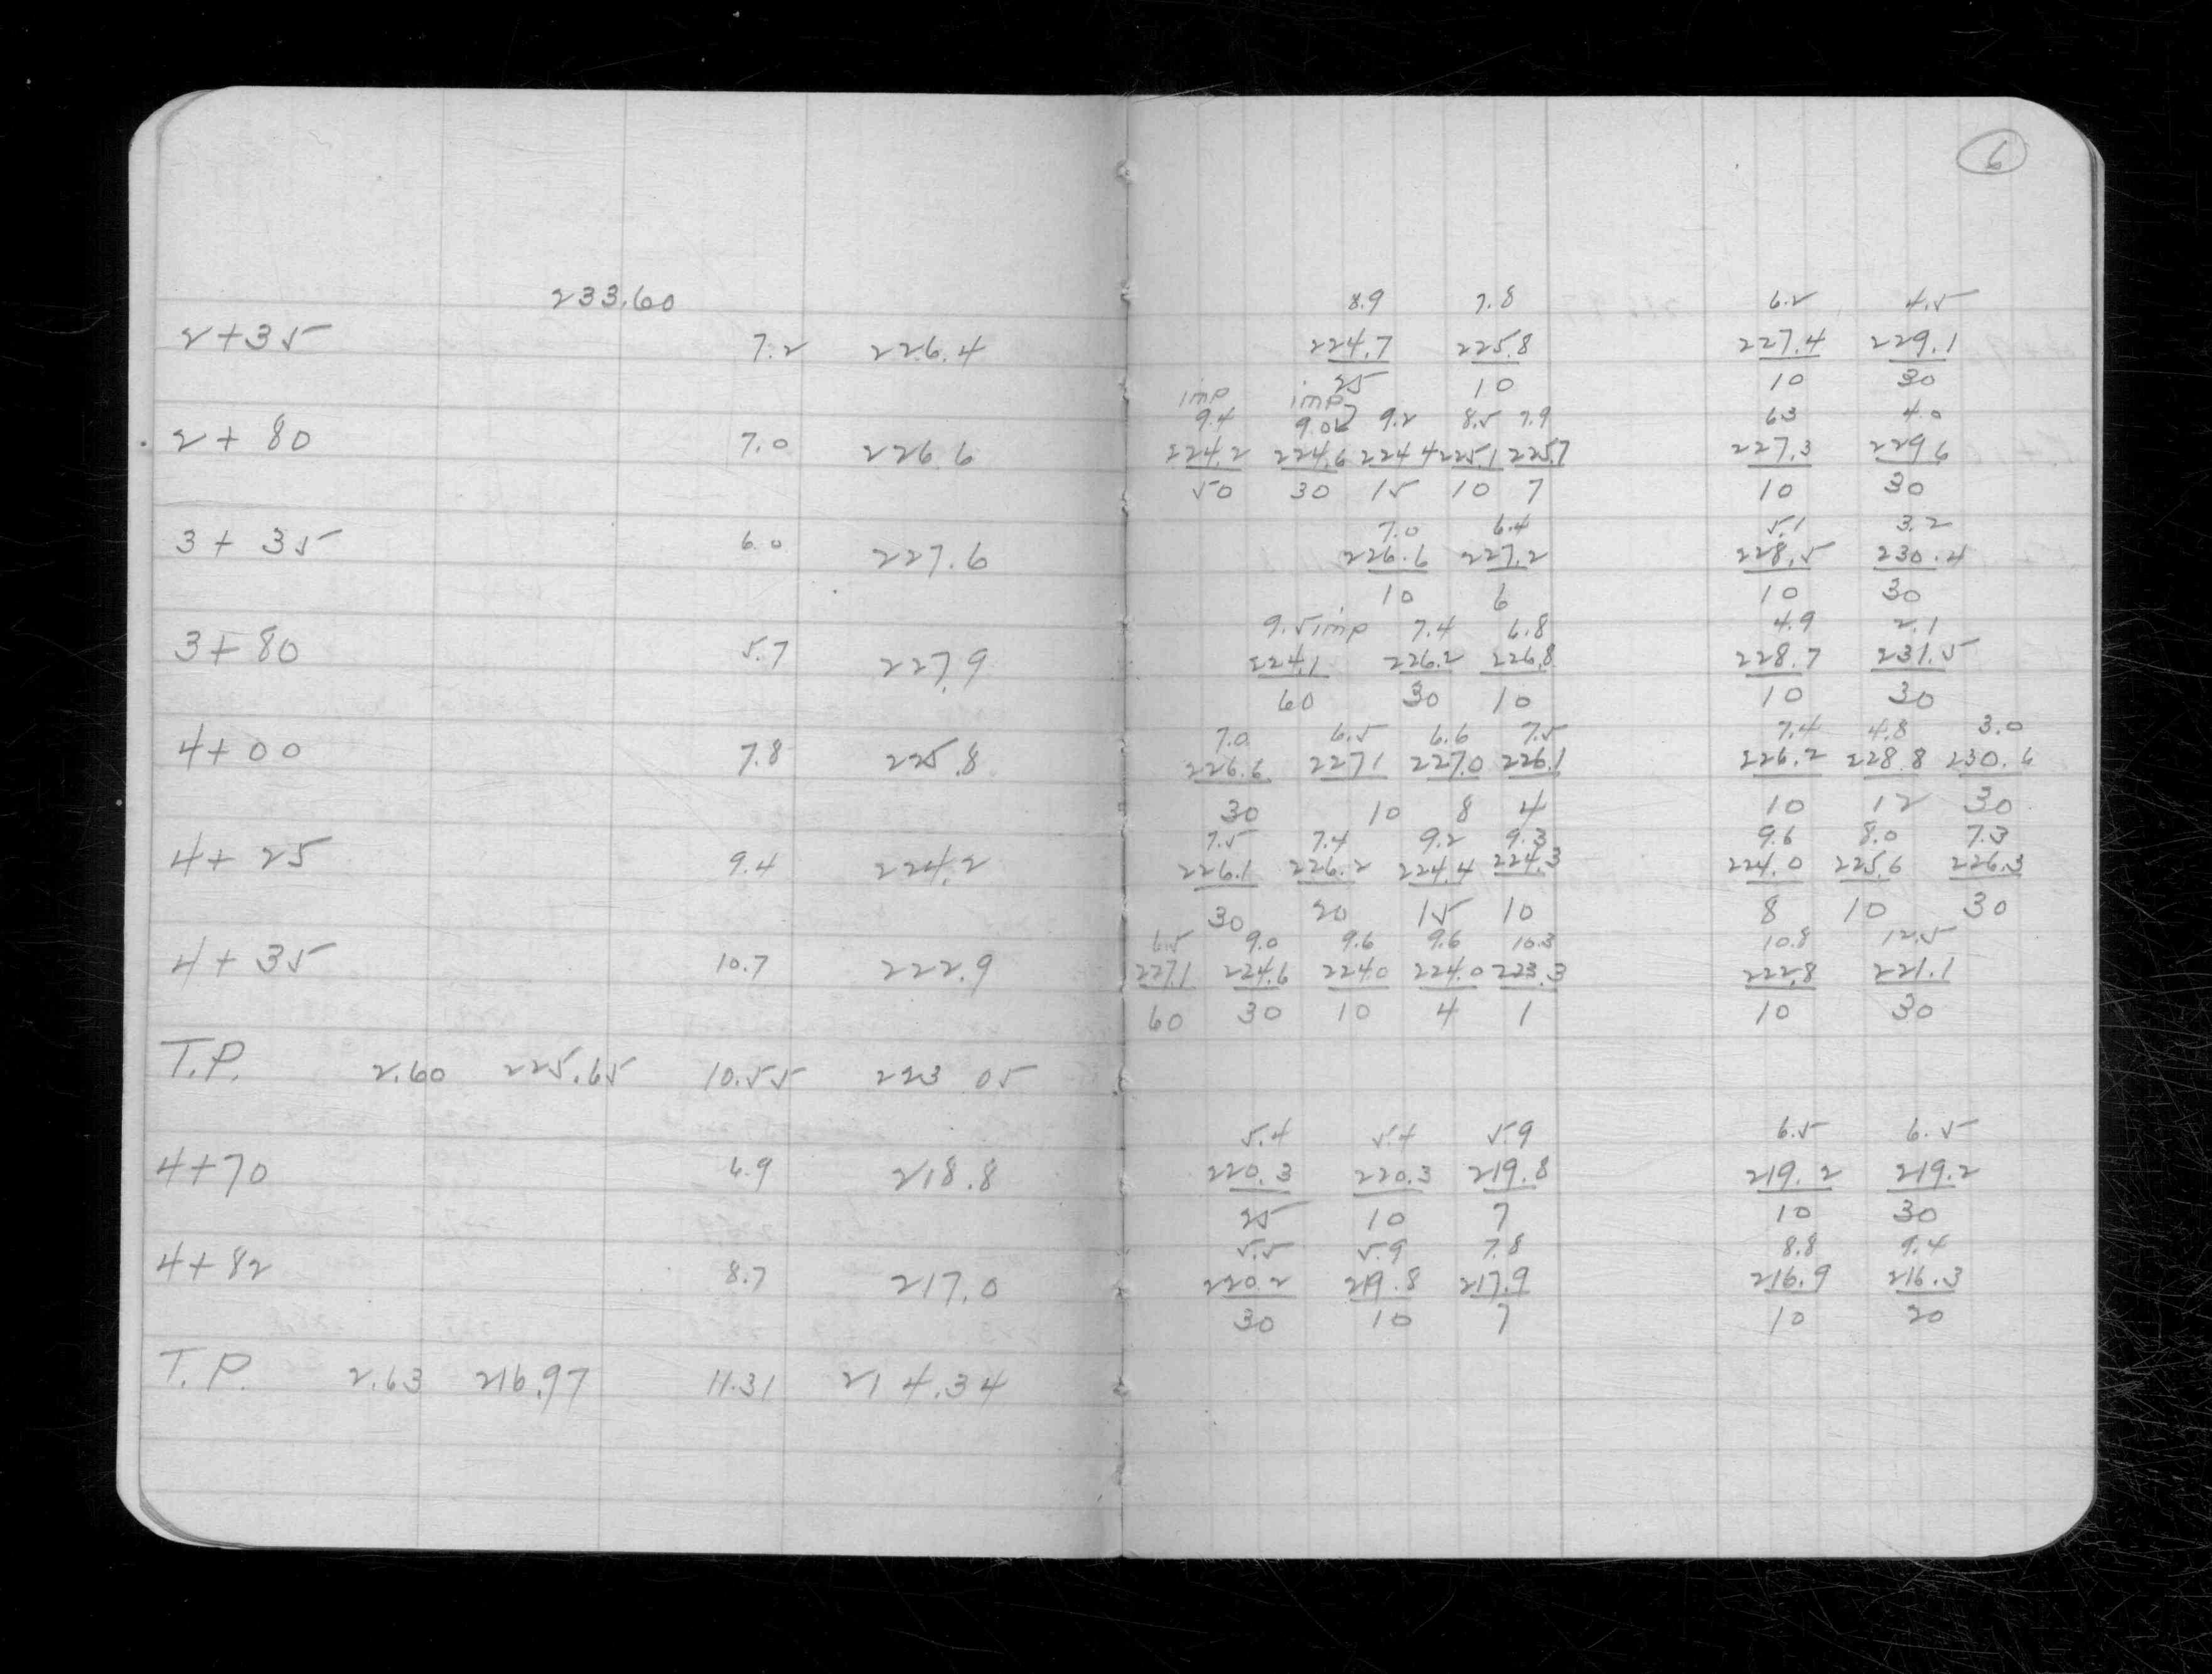 6
233.60
8.9 7.8 6.2 4.5
2+35 7.2 226.4 224.7 225.8 227.4 229.1
25 10 10 30
imp imp
9.4 9.0 9.2 8.5 7.9 63 4.0
2+80 7.0 226.6 224.2 224.6 224.4 225.1 225.7 227.3 229.6
50 30 15 10 7 10 30
7.0 6.4 5.1 3.2
3+35 6.0 227.6 226.6 227.2 228.5 230.4
10 6 10 30
9.5 imp 7.4 6.8 4.9 2.1
3+80 5.7 227.9 224.1 226.2 226.8 228.7 231.5
60 30 10 10 30
7.0 6.5 6.6 7.5 7.4 4.8 3.0
4+00 7.8 225.8 226.6 227.1 227.0 226.1 226.2 228.8 230.6
30 10 8 4 10 12 30
7.5 7.4 9.2 9.3 9.6 8.0 7.3
4+25 9.4 224.2 226.1 226.2 224.4 224.3 224.0 225.6 226.3
30 20 15 10 8 10 30
6.5 9.0 9.6 9.6 10.3 10.8 12.5
4+35 10.7 222.9 227.1 224.6 224.0 224.0 223.3 222.8 221.1
60 30 10 4 1 10 30
T.P. 2.60 225.65 10.55 223 05
5.4 5.4 5.9 6.5 6.5
4+70 6.9 218.8 220.3 220.3 219.8 219.2 219.2
25 10 7 10 30
5.5 5.9 7.8 8.8 9.4
4+82 8.7 217.0 220.2 219.8 217.9 216.9 216.3
30 10 7 10 20
T.P. 2.63 216.97 11.31 214.34